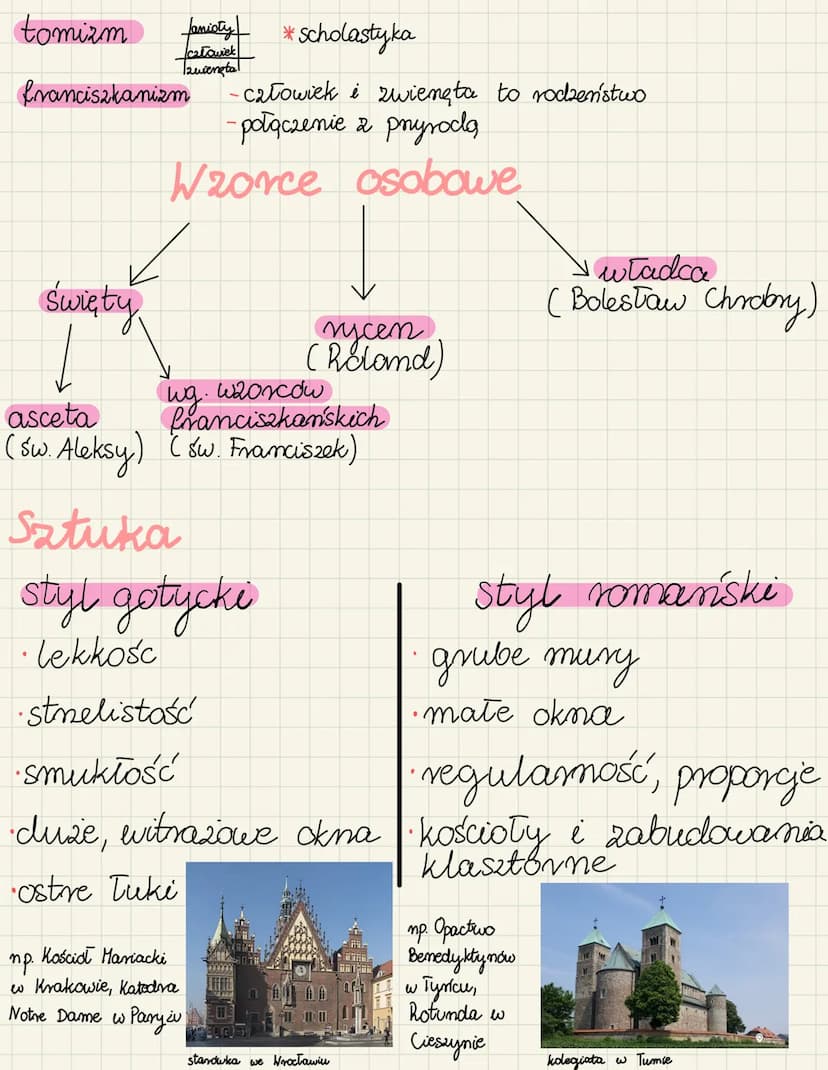 tomizm
anioły
człowiek
zwierzęta
*scholastyka
franciszkanizm
- człowiek i zwierzęta to rodzeństwo
- połączenie z przyrodą
Wzorce osobowe
święty
rycerz
(Roland)
władca
(Bolesław Chrobry)
asceta
(św. Aleksy)
wg. wzorców
franciszkańskich
(św. Franciszek)
Sztuka
styl gotycki
• lekkość
• strzelistość
• smukłość
• duże, witrażowe okna
• ostre łuki
np. Kościół Mariacki
w Krakowie, Katedra
Notre Dame w Paryżu
starówka we Wrocławiu
styl romański
• grube mury
• małe okna
• regularność, proporcje
• kościoły i zabudowania
klasztorne
np. Opactwo
Benedyktynów
w Tyńcu,
Rotunda w
Cieszynie
kolegiata w Tumie